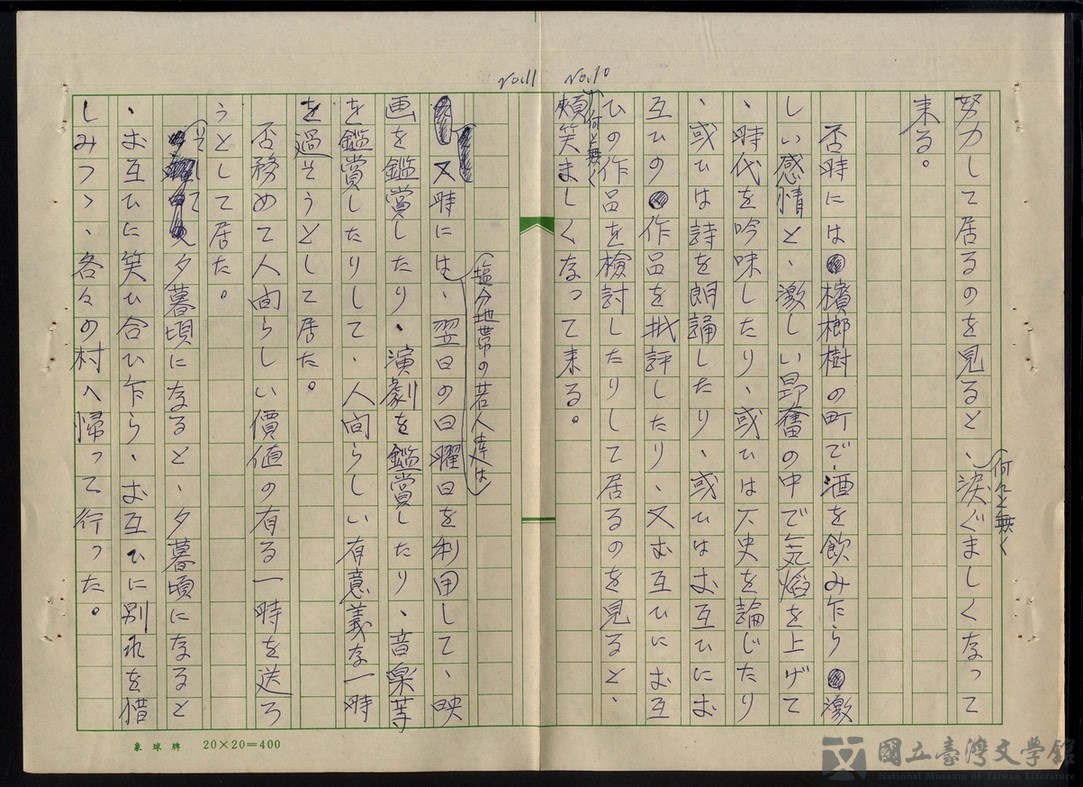 No.10
努力して居るのを見ると、何んと無く涙ぐましくなって
来る。
否時には檳榔樹の町で酒を飲み乍ら激
しい感情と、激しい昂奮の中で気焰を上げて
、時代を吟味したり、或ひは歴史を論じたり
、或ひは詩を朗誦したり、或ひはお互ひにお
互ひの作品を批評したり、又お互ひにお互
ひの作品を檢討したりして居るのを見ると、
何と無く頬笑ましくなって来る。
No.11
又時には、塩分地帯の若人達は翌日の日曜日を利用して、映
画を鑑賞したり、演劇を鑑賞したり、音楽等
を鑑賞したりして、人间らしい有意義な一時
を過そうとして居た。
否務めて人间らしい價値の有る一時を送ろ
うとして居た。
そして夕暮頃になると、夕暮頃になると
、お互ひに笑ひ合ひ乍ら、お互ひに別れを惜
しみつつ、各々の村へ帰って行った。
象球牌 20×20=400
國立臺灣文學館
National Museum of Taiwan Literature